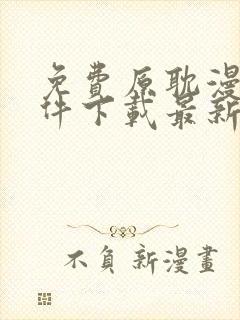 免費原耽漫
件下載最新
不負新漫畫